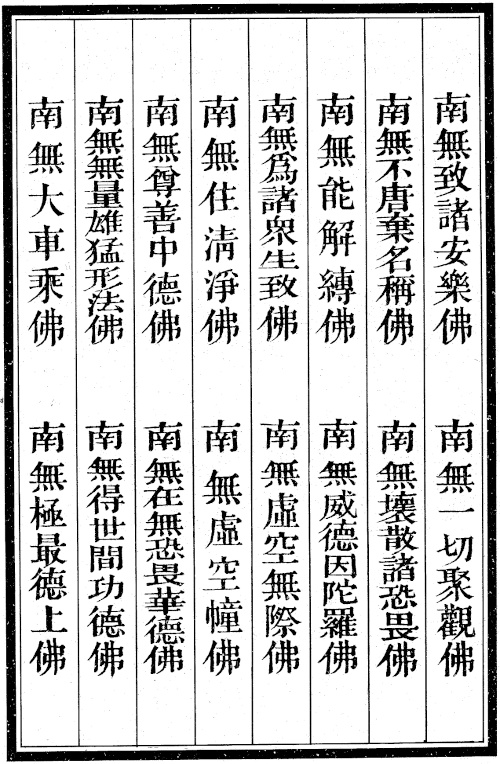 南無致諸安樂佛　南無一切聚觀佛
南無不唐棄名稱佛　南無壞散諸恐畏佛
南無能解縛佛　南無威德因陀羅佛
南無為諸眾生致佛　南無虛空無際佛
南無住清淨佛　南無虛空幢佛
南無尊善中德佛　南無在無恐畏華德佛
南無無量雄猛形法佛　南無得世間功德佛
南無大車乘佛　南無極最德上佛